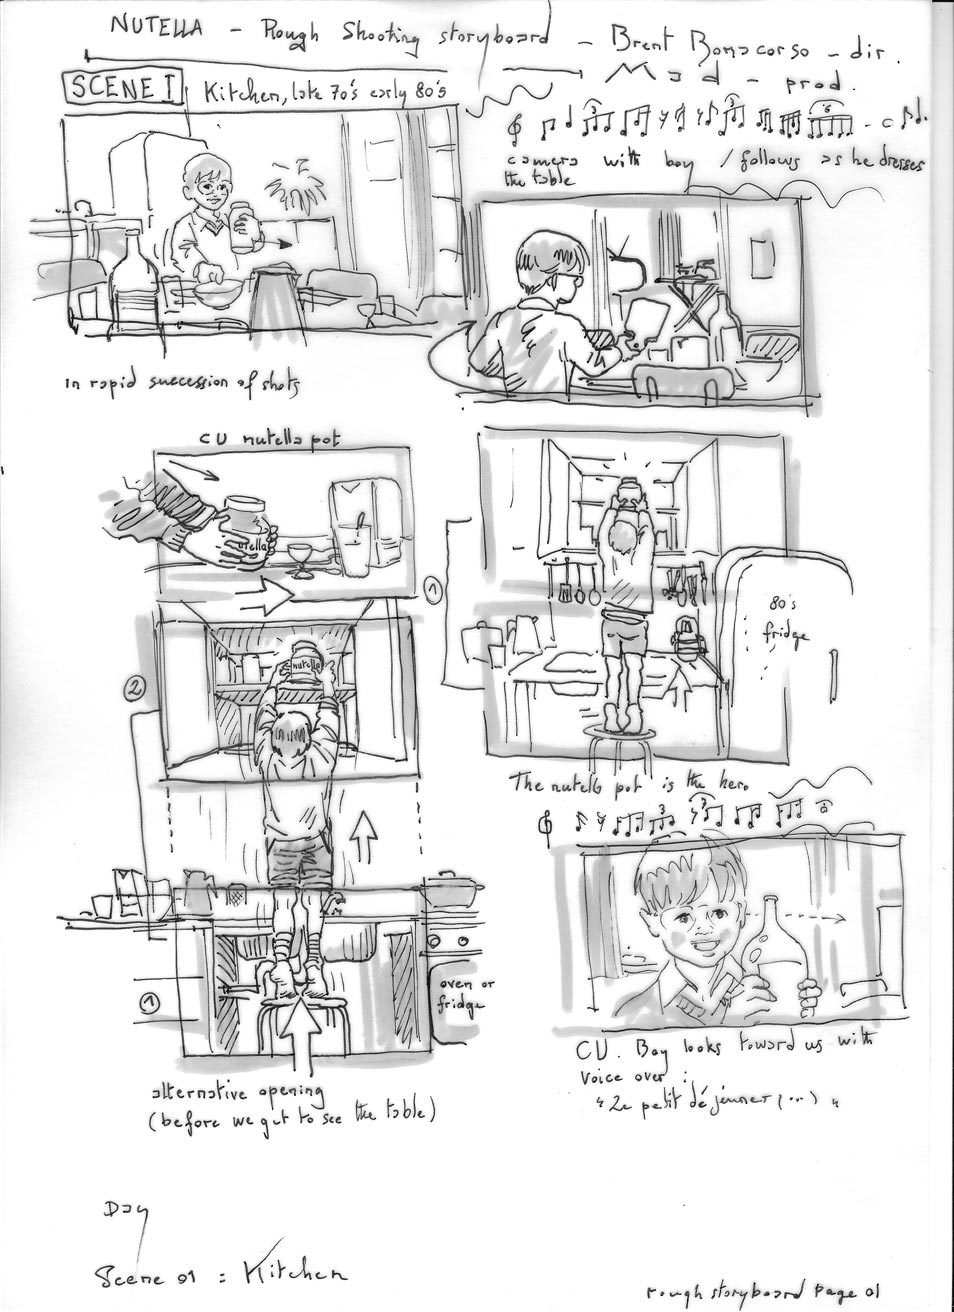 NUTELLA - Rough Shooting storyboard - Brent Bonacorso - dir.
Mad - prod.
SCENE I
Kitchen, late 70's early 80's
camera with boy / follows as he dresses
the table
in rapid succession of shots
CU nutella pot
utella
1
80's
fridge
2
nutella
The nutella pot is the hero
1
oven or
fridge
alternative opening
(before we get to see the table)
CU. Boy looks toward us with
voice over :
"Le petit déjeuner (...) "
Day
Scene 01 : Kitchen
rough storyboard page 01